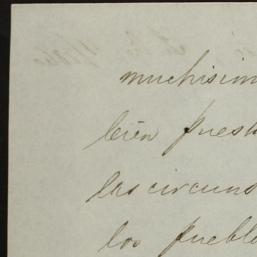 muchisim
bien puest
las circuns
los pueblo